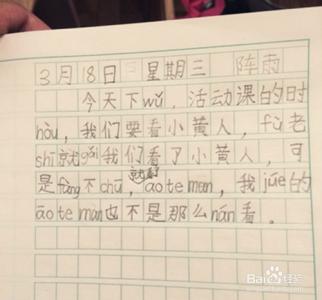 3月18日 星期三 阵雨
今天下wǔ，活动课的时
hòu，我们要看小黄人，fù老
shī就gěi我们看了小黄人，可
是fàng不chū，就看āo te man，我jüe的
āo te man也不是那么nán看。
Baidu经验